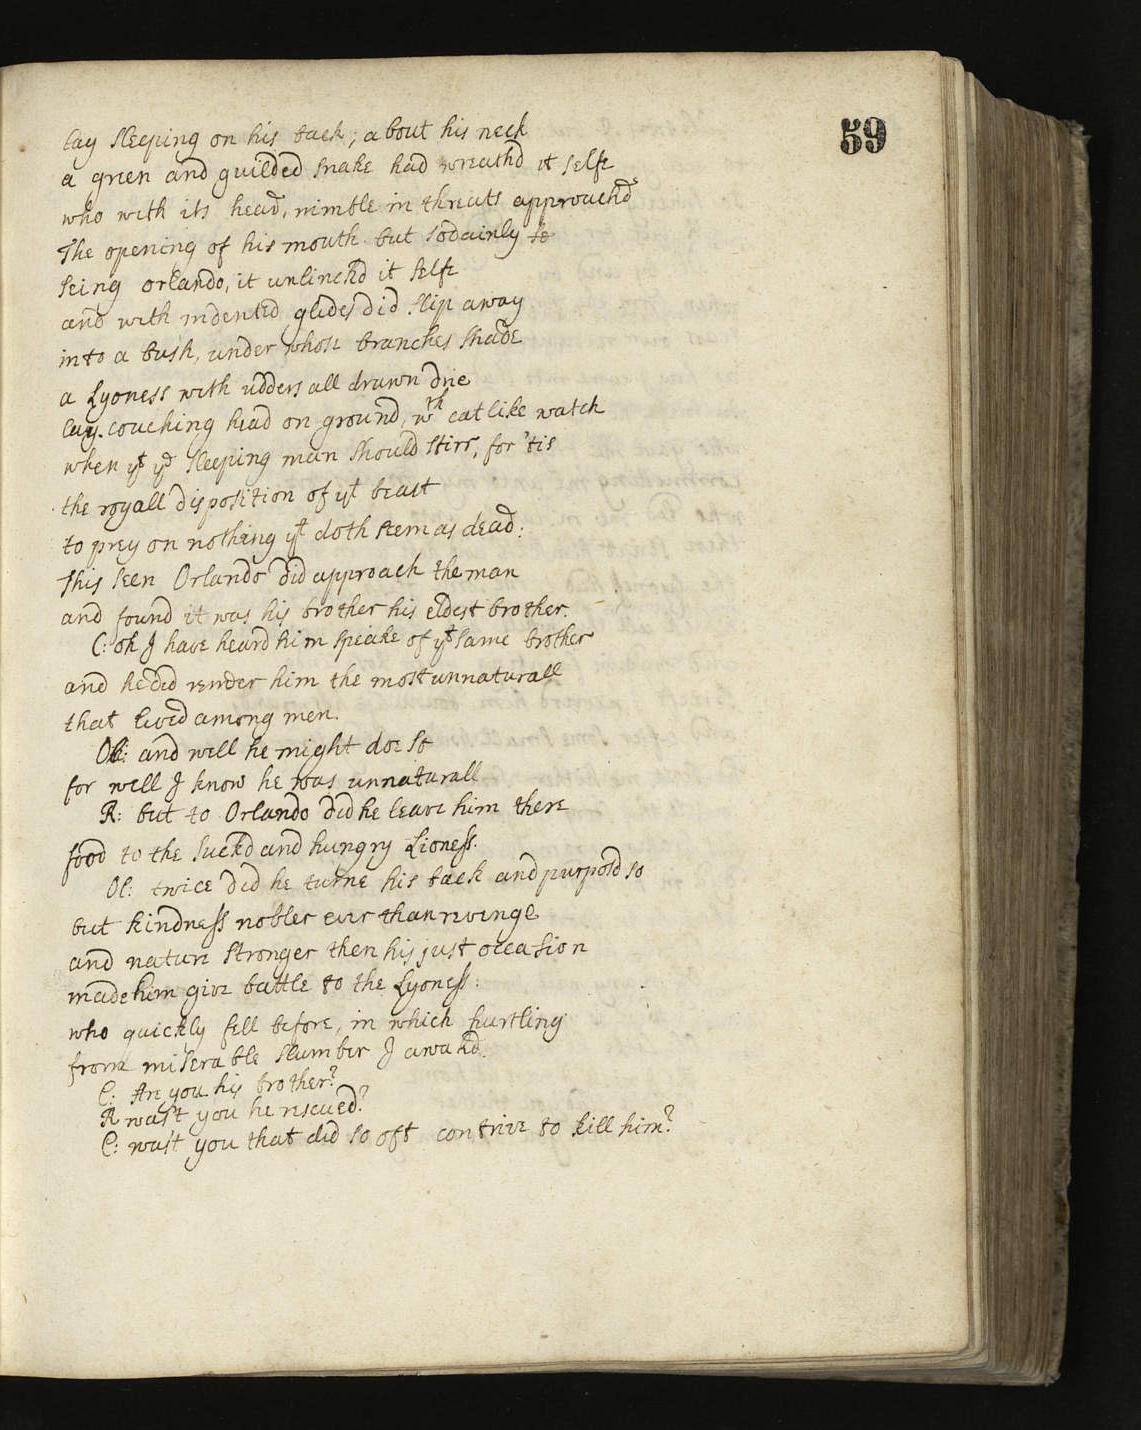 59
lay sleeping on his back; about his neck
a green and guilded snake had wreathd it selfe
who with its head, nimble in threats approachd
The opening of his mouth but sodainly se
seing orlando, it unlinckd it selfe
and with indented glides did slip away
into a bush, under whose branches shade
a Lyoness with udders all drawn drie
lay. couching head on ground, wth catlike watch
when yt ye sleeping man should stirr, for 'tis
the royall disposition of yt beast
to prey on nothing yt doth seem as dead:
This seen Orlando did approach the man
and found it was his brother his eldest brother.
C: oh I have heard him speake of yt same brother
and he did render him the most unnaturall
that lived among men.
Ol: and well he might doe so
for well I know he was unnaturall
R: but to Orlando did he leave him there
food to the suckd and hungry Lioness.
Ol: twice did he turne his back and purposd so
but kindness nobler ever than revenge
and nature stronger then his just occasion
made him give battle to the Lyoness:
who quickly fell before, in which hurtling
from miserable slumber I awakd.
C: Are you his brother?
R wast you he rescued?
C: wast you that did so oft contrive to kill him?